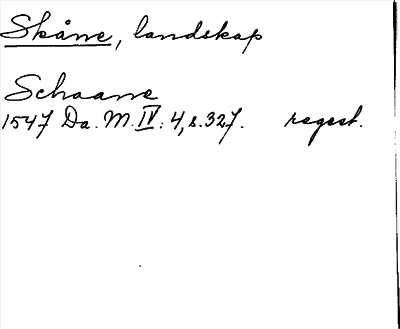 Skåne, landskap
Schaane
1547 Da. M. IV: 4, s. 327. regest.